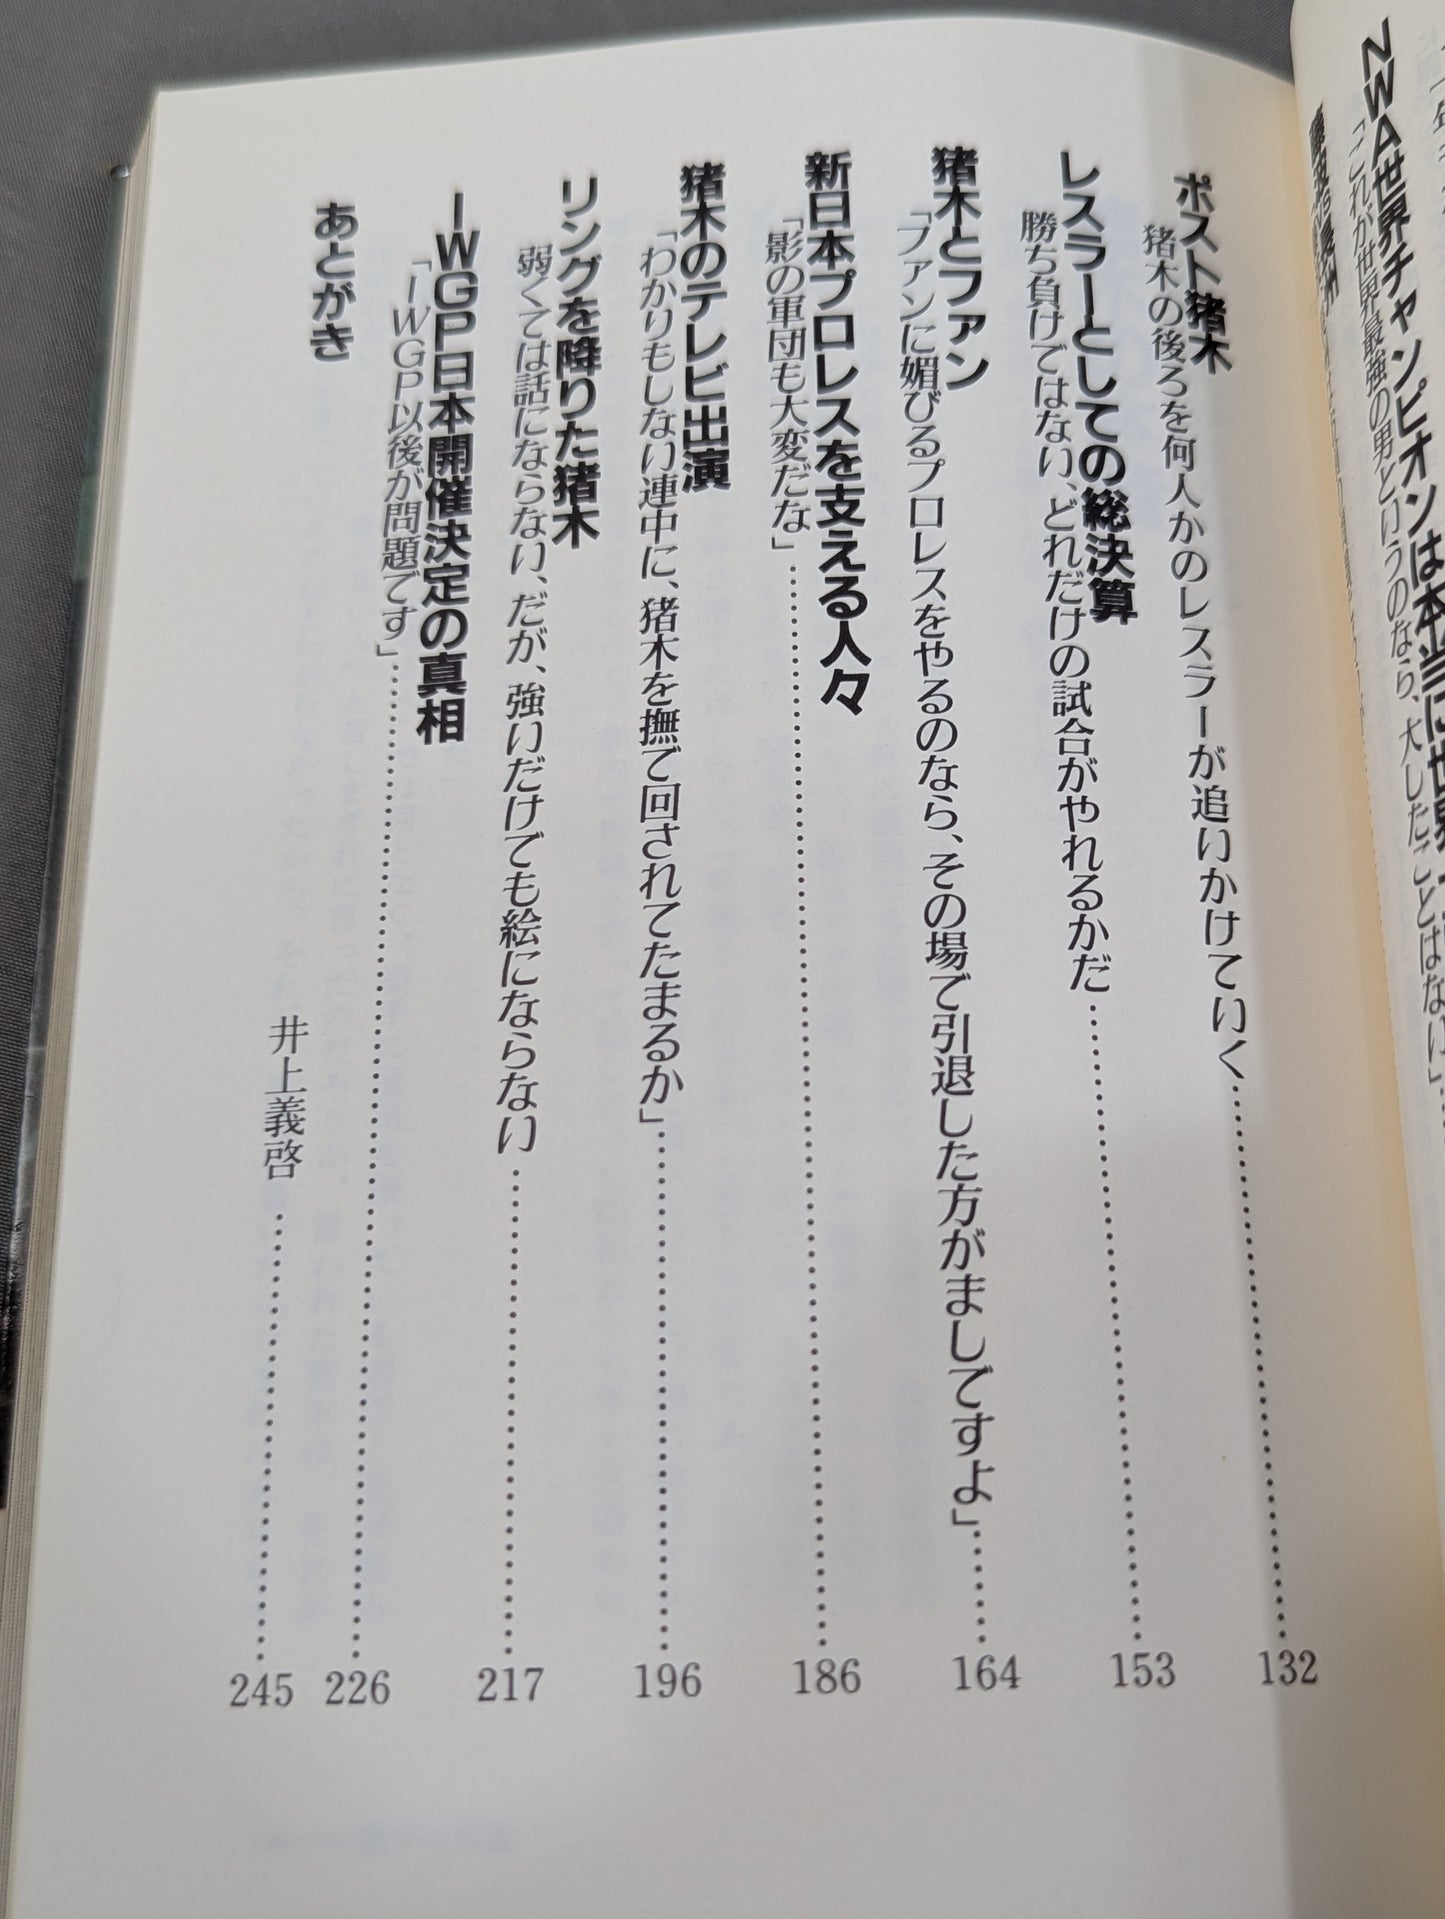 NWA世界チャンピオンは本当に世界
「これが世界最強の男というのなら、大したことはない」
ポスト猪木
猪木の後ろを何人かのレスラーが追いかけていく……132
レスラーとしての総決算
勝ち負けではない、どれだけの試合がやれるかだ……153
猪木とファン
「ファンに媚びるプロレスをやるのなら、その場で引退した方がましですよ」……164
新日本プロレスを支える人々
「影の軍団も大変だな」……186
猪木のテレビ出演
「わかりもしない連中に、猪木を撫で回されてたまるか」……196
リングを降りた猪木
弱くては話にならない、だが、強いだけでも絵にならない……217
IWGP日本開催決定の真相
「IWGP以後が問題です」……226
あとがき
井上義啓……245